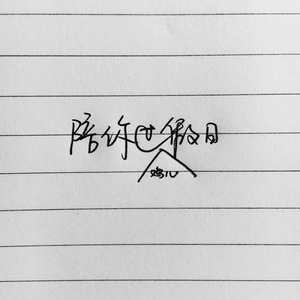 陪你过假日
鸡儿